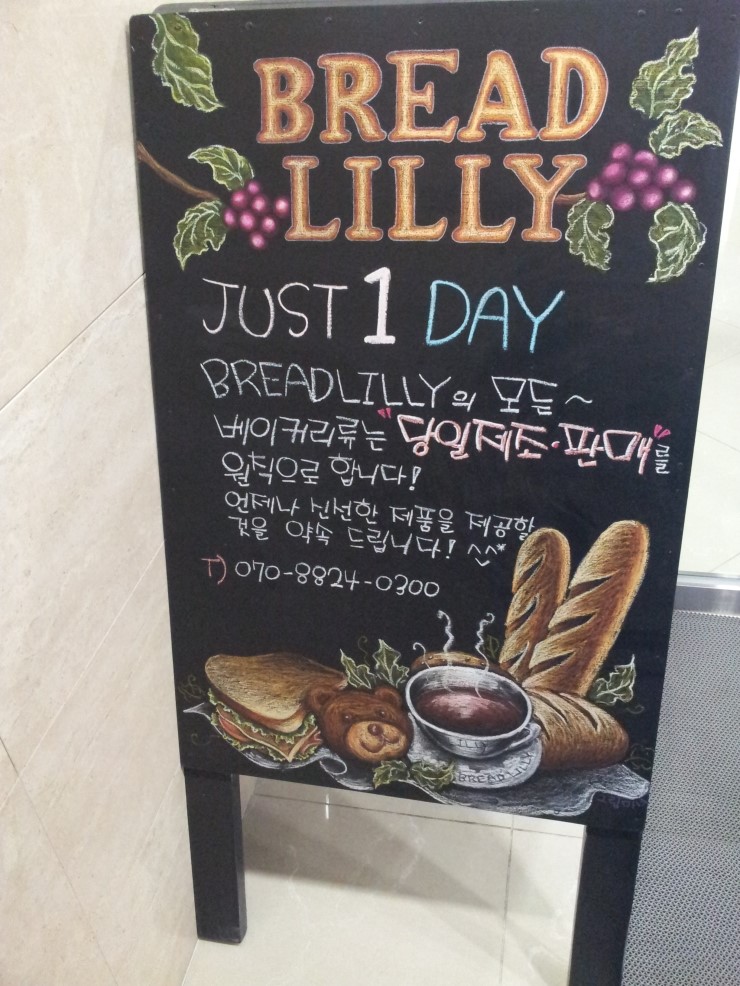 BREAD
LILLY
JUST 1 DAY
BREADLILLY의 모든~
베이커리류는 "당일제조·판매"를
원칙으로 합니다!
언제나 신선한 제품을 제공할
것을 약속 드립니다! ^^*
T) 070-8824-0300
LILLY
BREAD LILLY